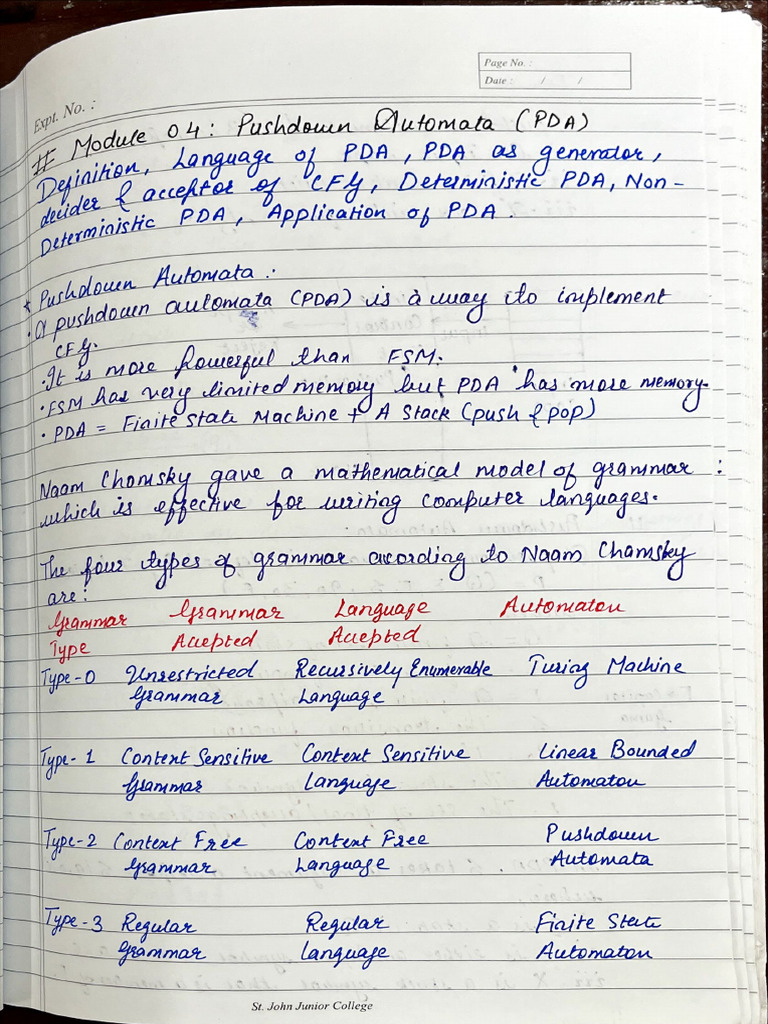 Page No. :
Date : / /
Expt. No. :
# Module 04: Pushdown Automata (PDA)
Definition, Language of PDA, PDA as generator,
decider & acceptor of CFG, Deterministic PDA, Non-
Deterministic PDA, Application of PDA.
* Pushdown Automata:
• A pushdown automata (PDA) is a way to implement
CFG.
• It is more powerful than FSM.
• FSM has very limited memory but PDA has more memory.
• PDA = Finite State Machine + A Stack (push & pop)
Naam Chomsky gave a mathematical model of grammar :
which is effective for writing computer languages.
The four types of grammar acording to Naam Chamsky
are:
Grammar Grammar Language Automaton
Type Accepted Accepted
Type-0 Unrestricted Recursively Enumerable Turing Machine
Grammar Language
Type-1 Context Sensitive Context Sensitive Linear Bounded
Grammar Language Automaton
Type-2 Context Free Context Free Pushdown
Grammar Language Automata
Type-3 Regular Regular Finite State
Grammar Language Automaton
St. John Junior College